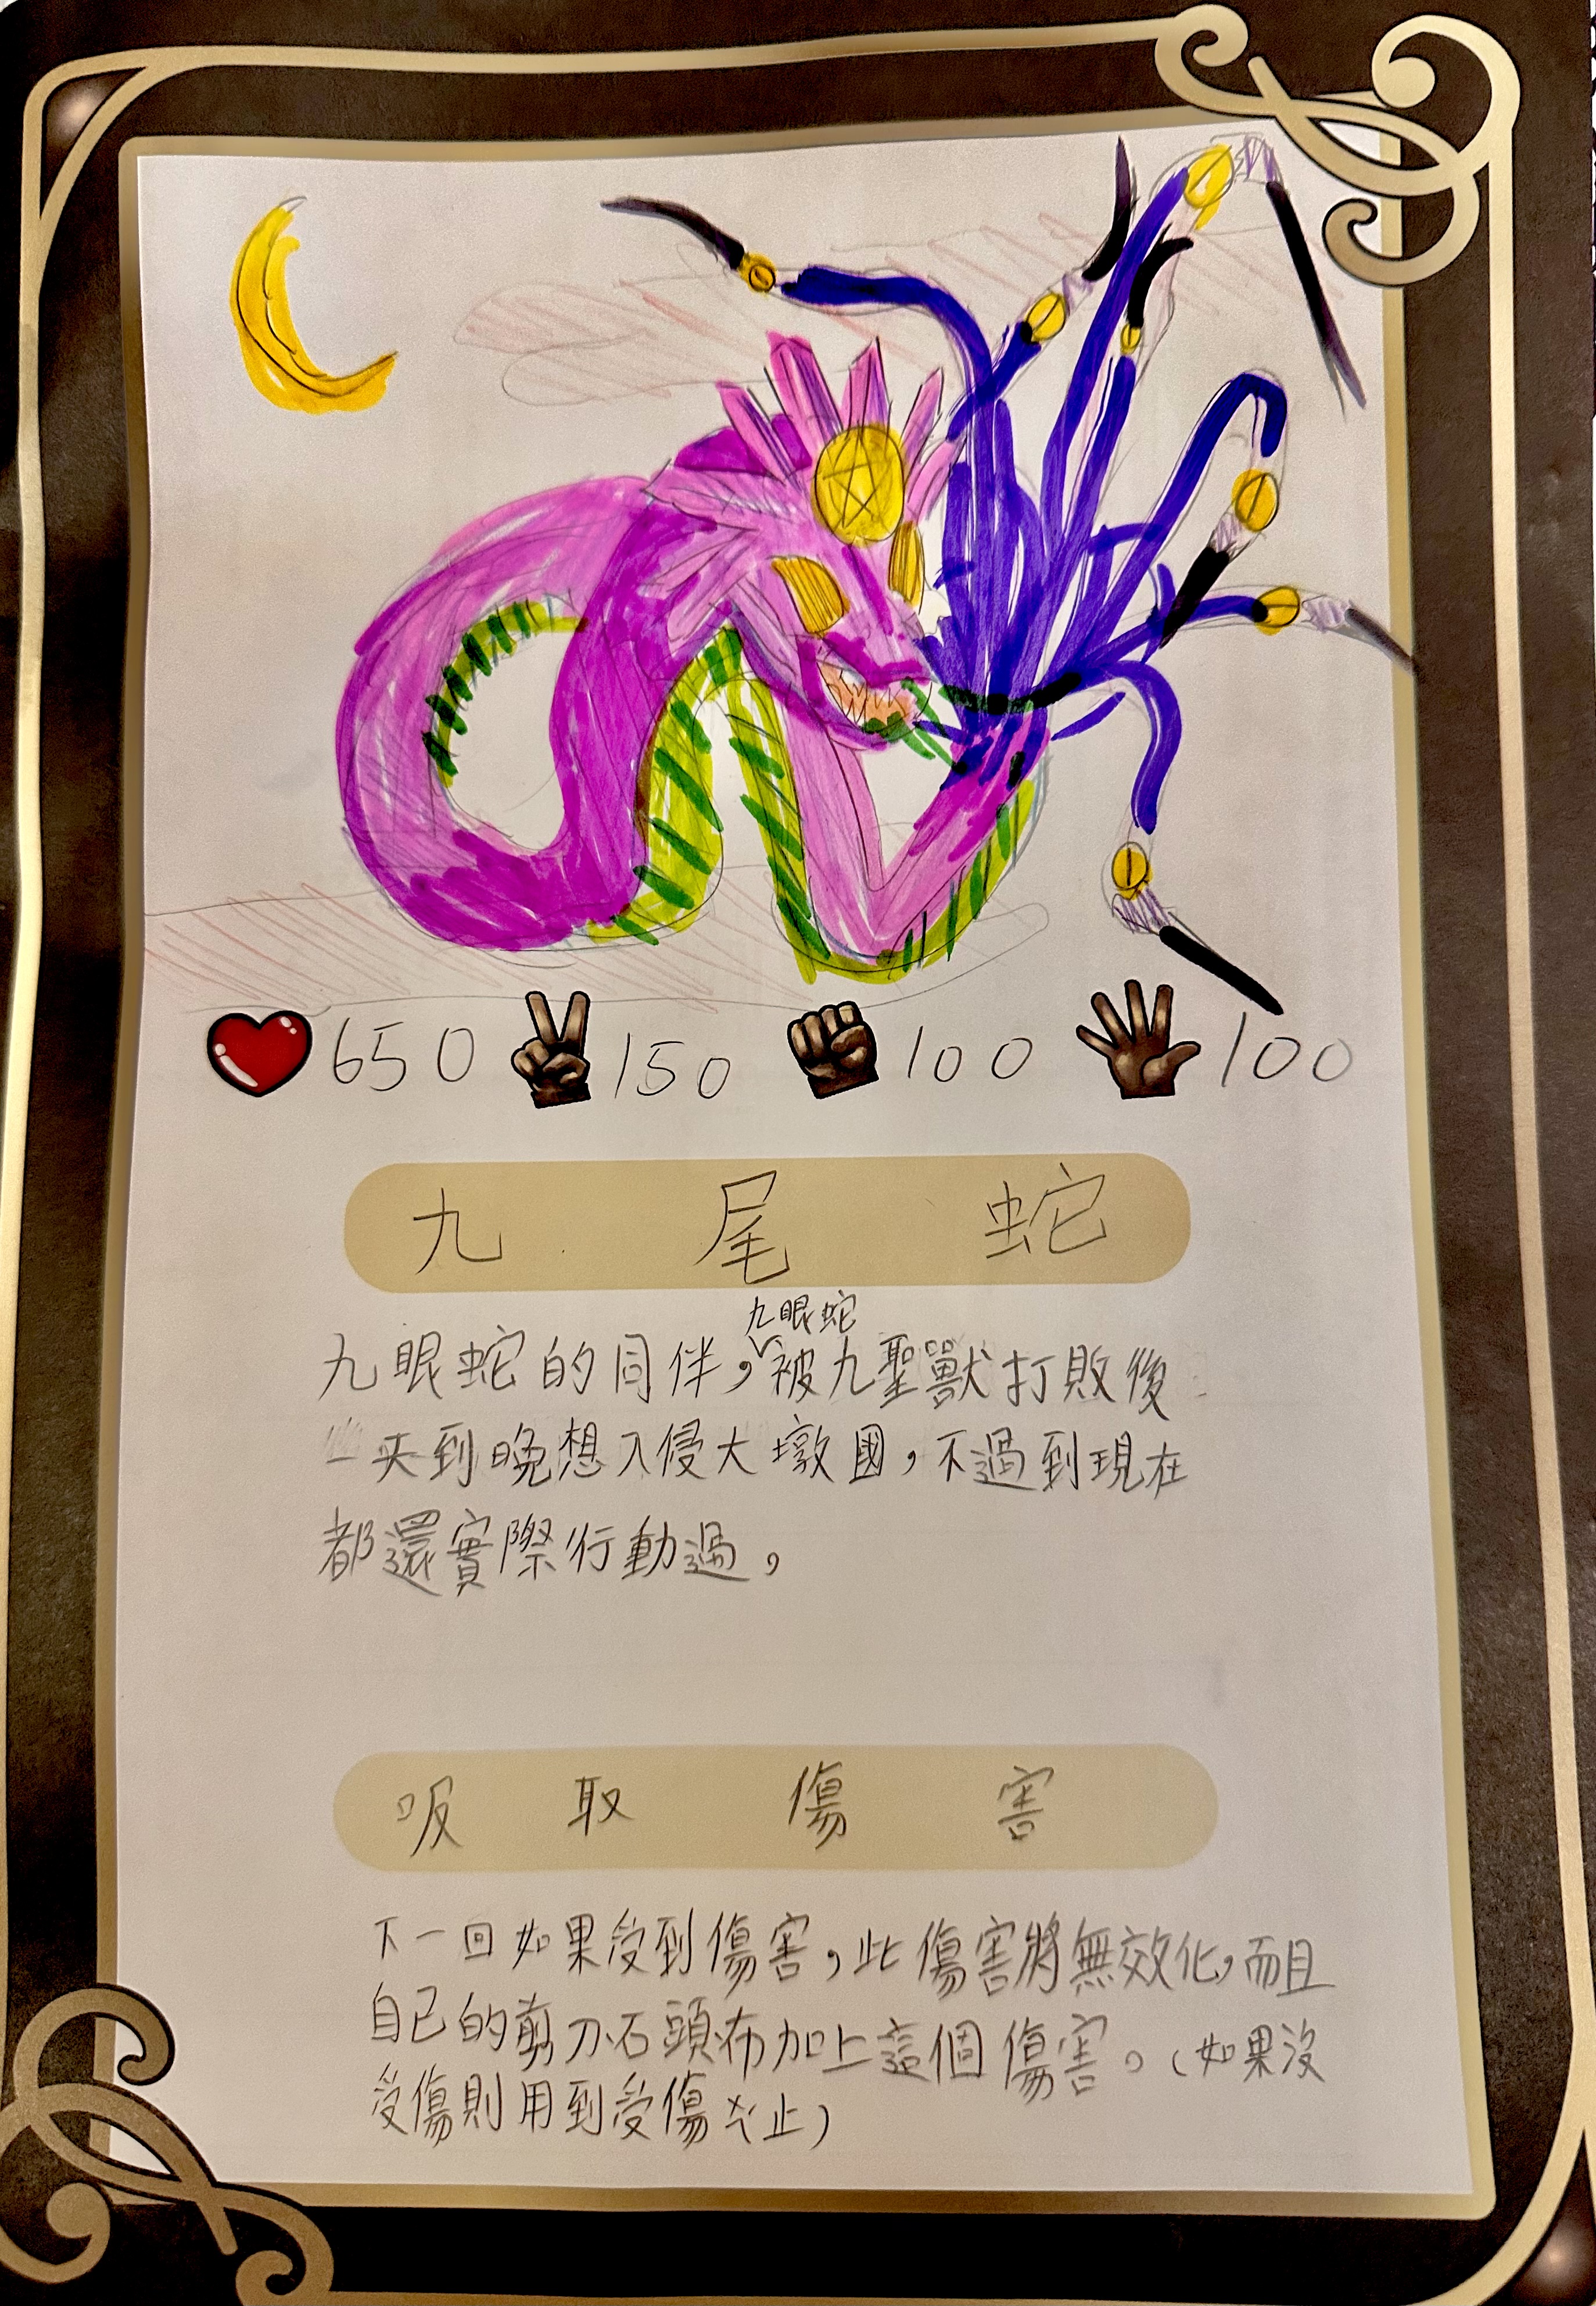 650 150 100 100
九尾蛇
九眼蛇
九眼蛇的同伴，被九聖獸打敗後
一天到晚想入侵大墩國，不過到現在
都還實際行動過，
吸取傷害
下一回如果受到傷害，此傷害將無效化，而且
自己的剪刀石頭布加上這個傷害。（如果沒
受傷則用到受傷止）